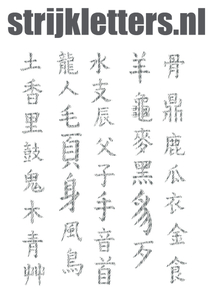 strijkletters.nl
骨鼎鹿瓜衣金食
羊龜麥黑豸歹
水支辰父子手音首
龍人毛頁身風鳥
土香里鼓鬼木青艸